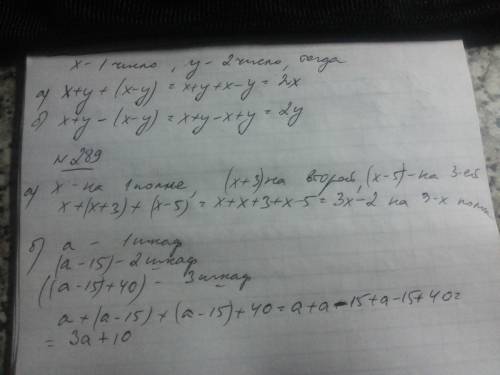 x - 1 число, y - 2 число, тогда
а) x+y+(x-y) = x+y+x-y = 2x
б) x+y-(x-y) = x+y-x+y = 2y
№289
а) x - на 1 полке, (x+3) на второй, (x-5) - на 3-ей
x+(x+3)+(x-5) = x+x+3+x-5 = 3x-2 на 3-х полках
б) a - 1 шкаф
(a-15) - 2 шкаф
((a-15)+40) - 3 шкаф
a+(a-15)+(a-15)+40 = a+a-15+a-15+40 =
= 3a+10